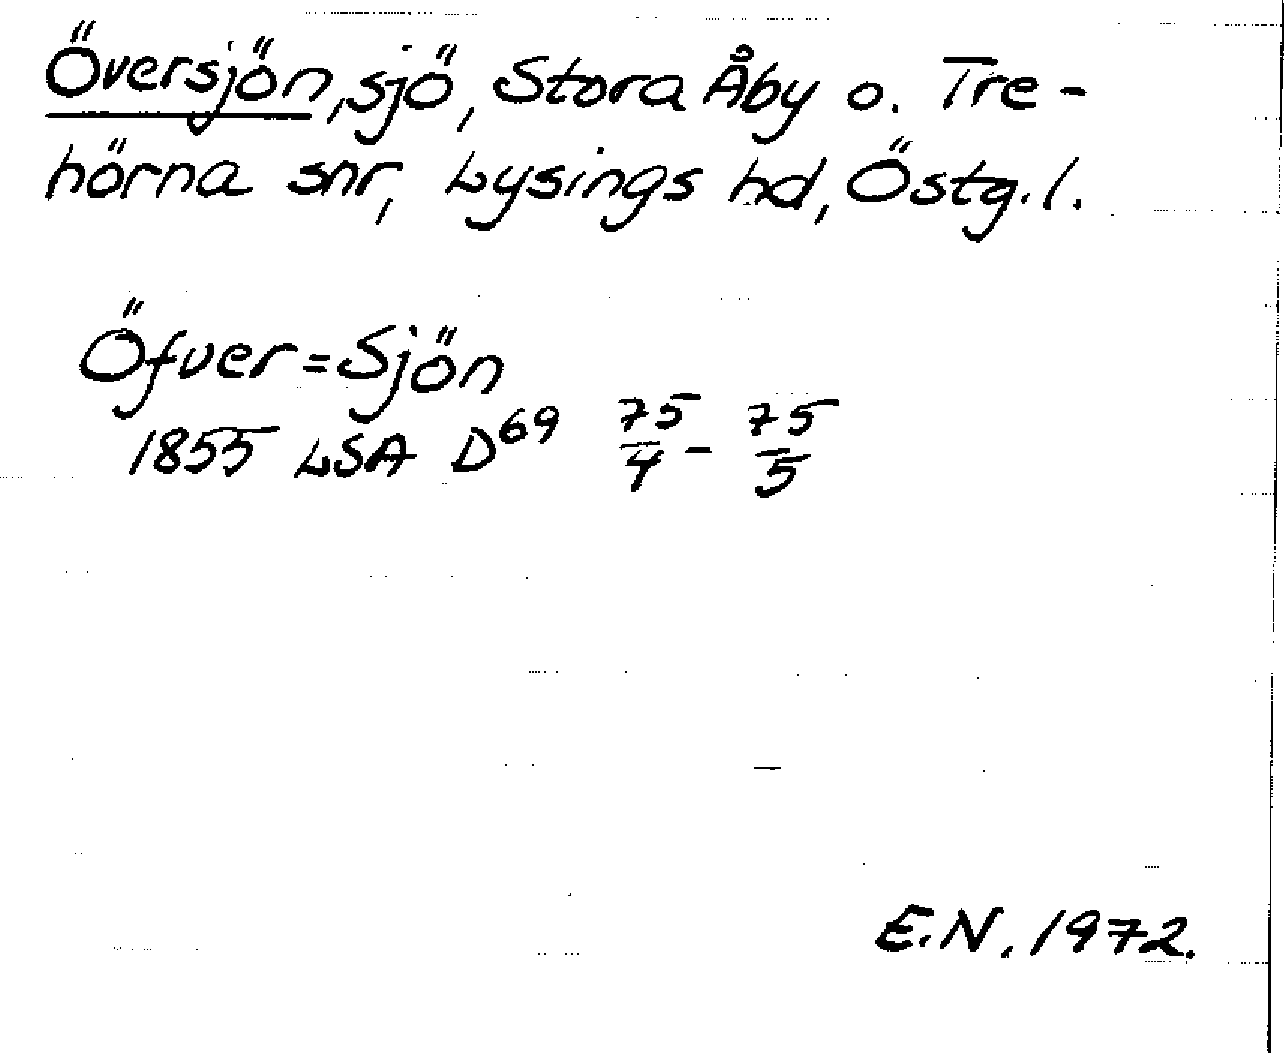 Översjön, sjö, Stora Åby o. Tre-
hörna snr, Lysings hd, Östg.l.
Öfver=Sjön
1855 LSA D⁶⁹ 75/4 - 75/5
E.N. 1972.